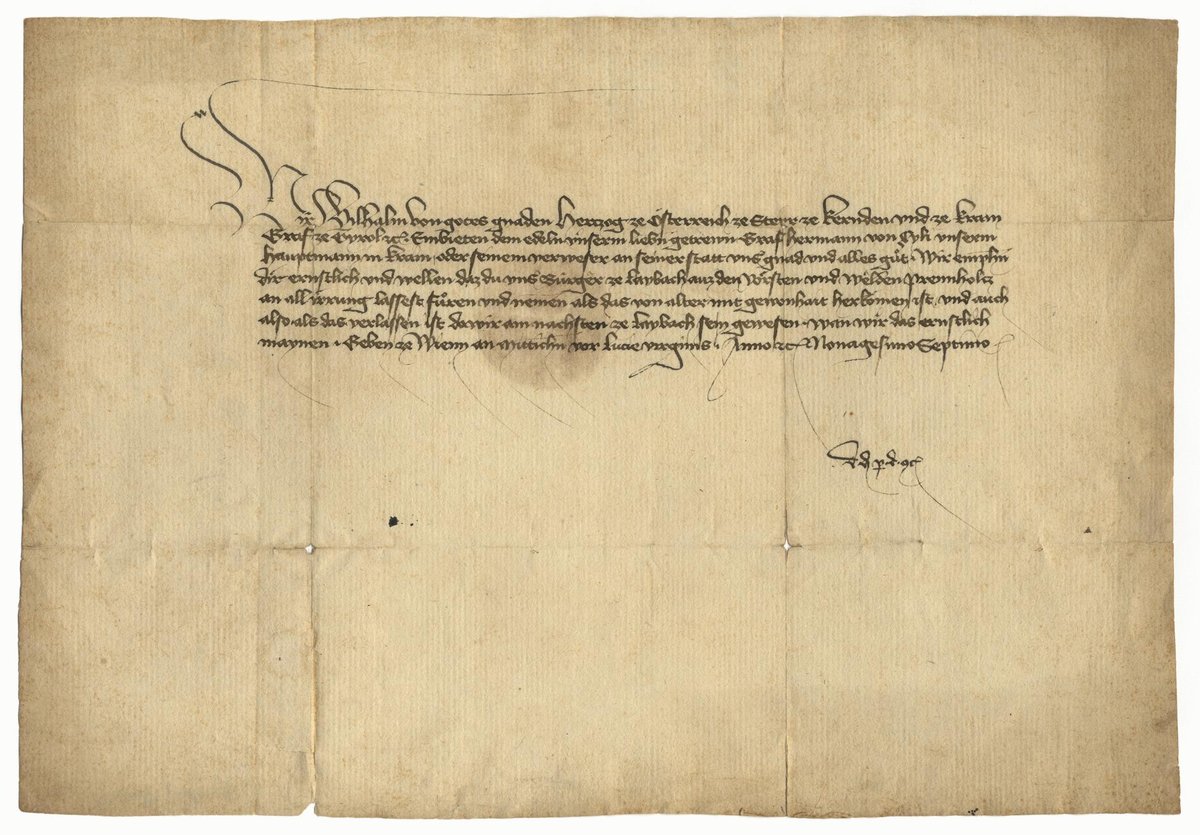 Wir Wilhalm von gotes gnaden Hertzog ze Österreich ze Steyr ze Kernden und ze Krain
Graf ze Tyrol etc Embieten dem edeln unserm liebn getrewn Graf Herman von Cyli unserm
hauptmann in Krain oder seinem verweser an seiner statt uns gnad und alles gůt Wir emphln
dir ernstlich und wellen daz du uns Burger ze Laybach auz den vörsten und welden Prennholtz
an all irrung lassest fůren und nemen als das von alter mit gewonhait herkomen ist und auch
also als das verlassen ist do wir am nachsten ze Laybach sein gewesen wan wir das ernstlich
maynen Geben ze Wienn an Mitichn vor Lucie virginis Anno etc Nonagesimo Septimo
d d p d